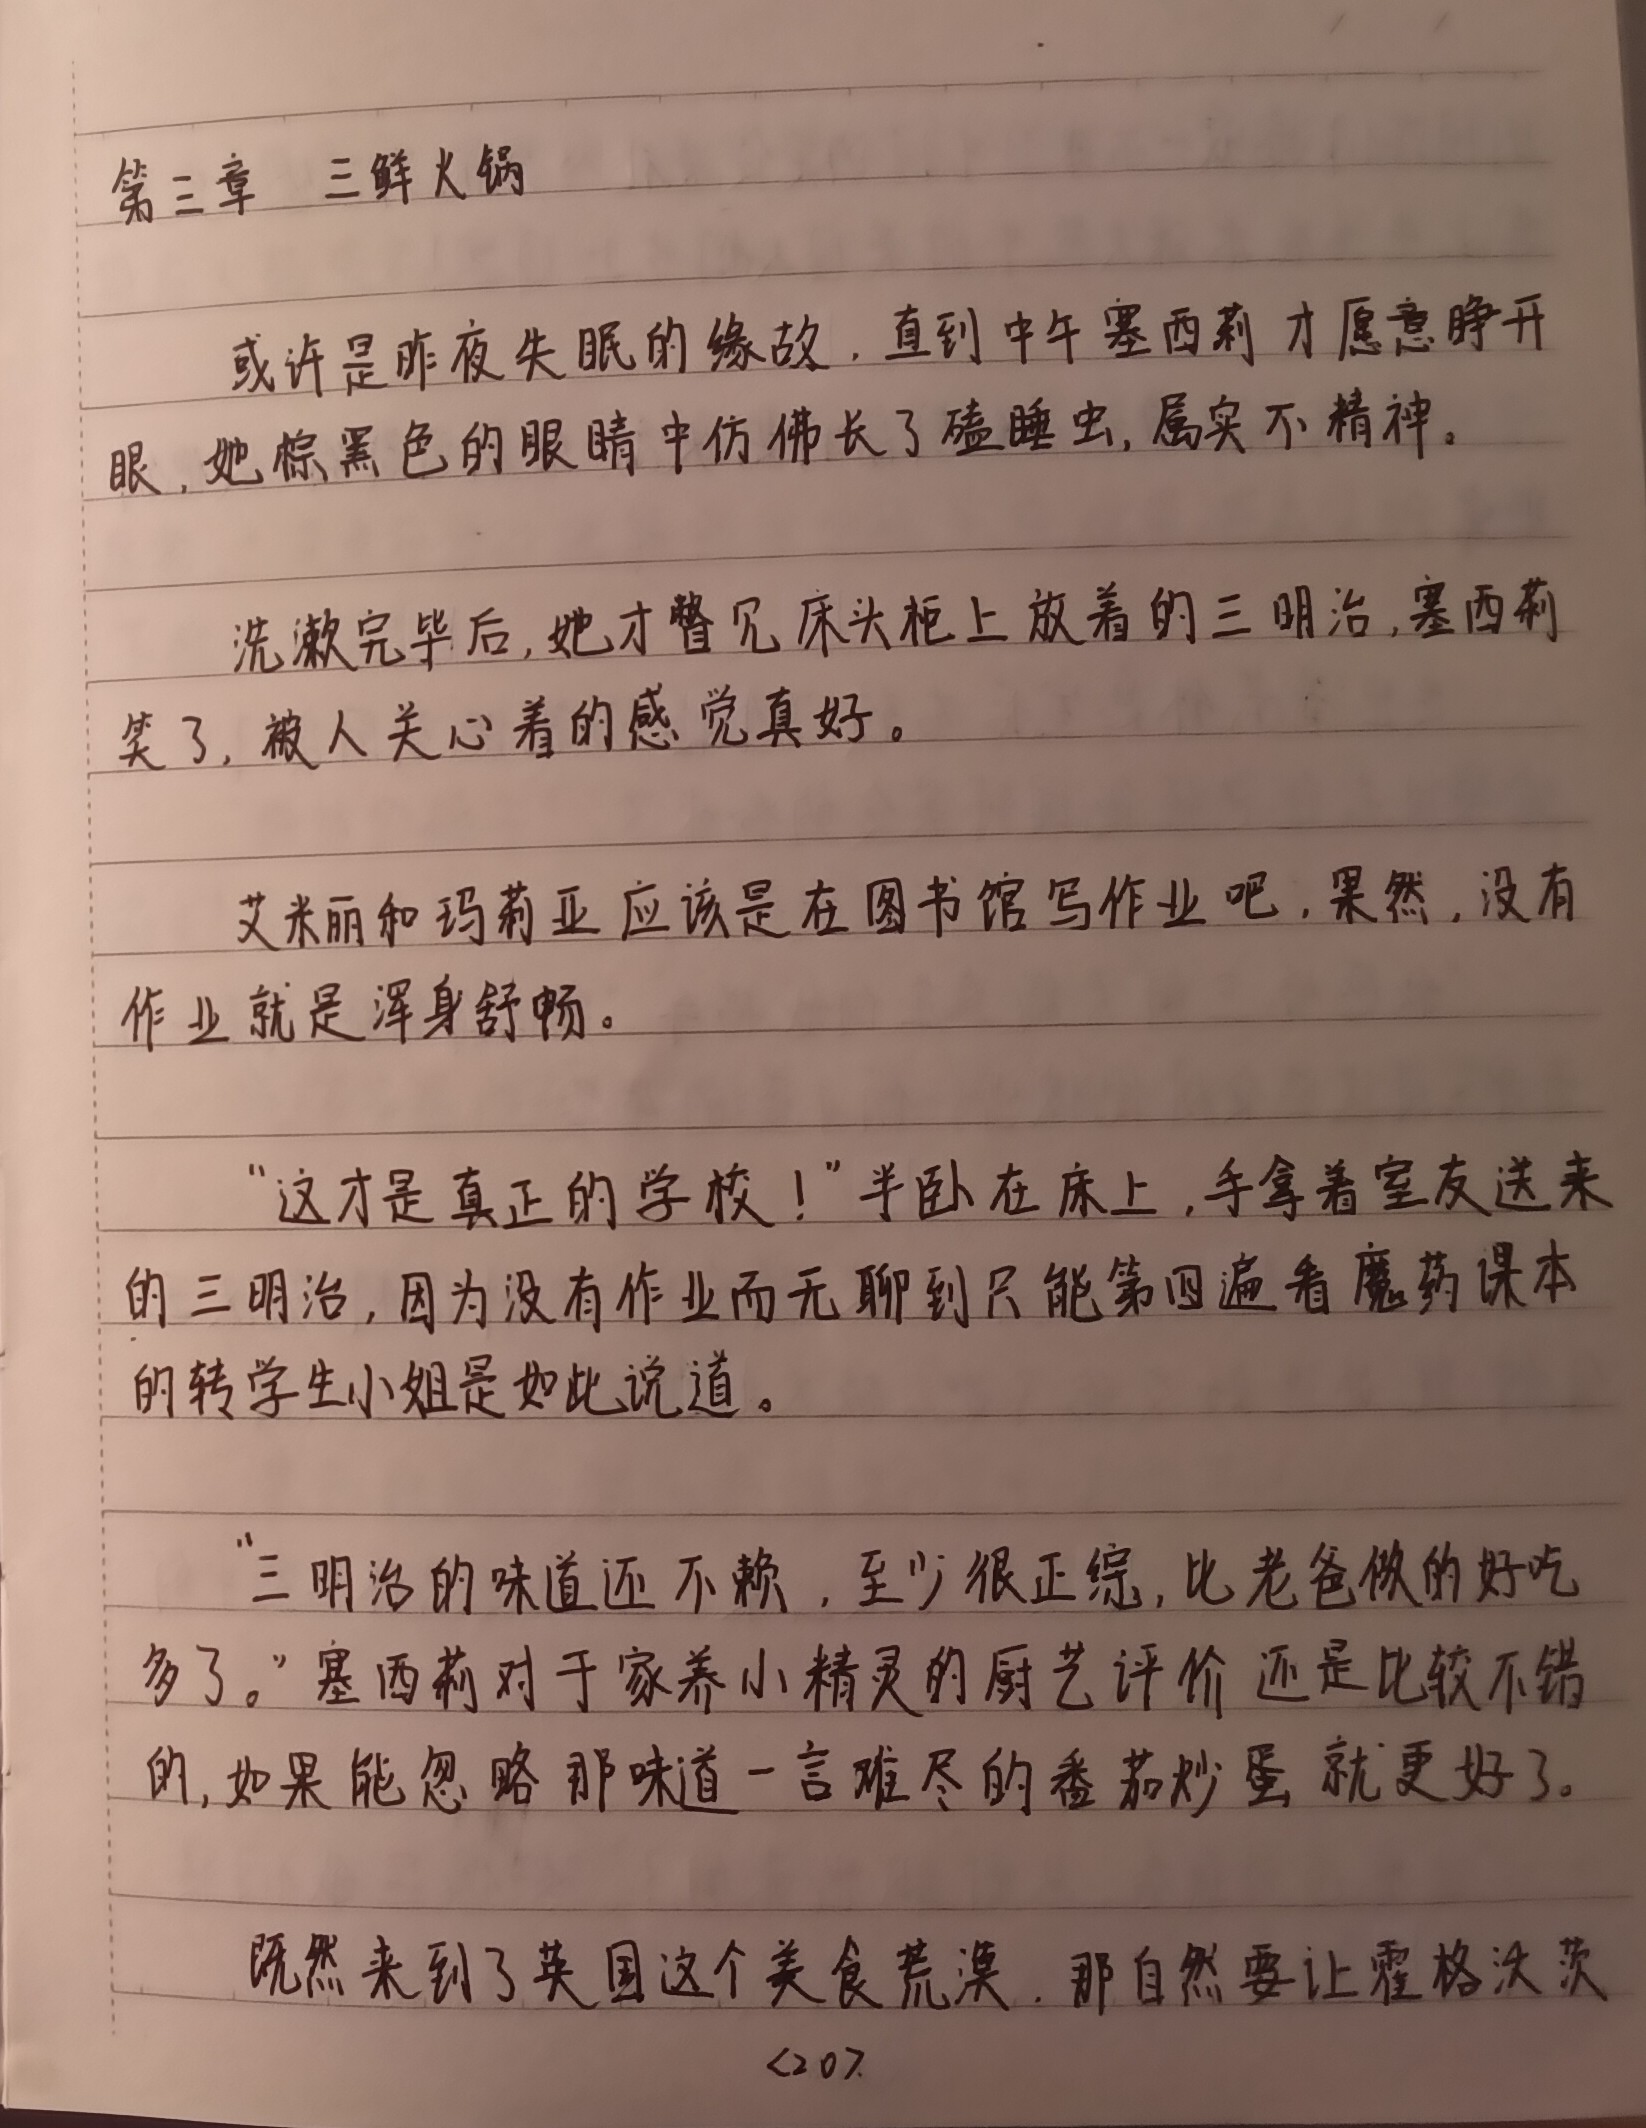 第三章 三鲜火锅
或许是昨夜失眠的缘故，直到中午塞西莉才愿意睁开
眼，她棕黑色的眼睛中仿佛长了磕睡虫，属实不精神。
洗漱完毕后，她才瞥见床头柜上放着的三明治，塞西莉
笑了，被人关心着的感觉真好。
艾米丽和玛莉亚应该是在图书馆写作业吧，果然，没有
作业就是浑身舒畅。
“这才是真正的学校！”半卧在床上，手拿着室友送来
的三明治，因为没有作业而无聊到只能第四遍看魔药课本
的转学生小姐是如此说道。
“三明治的味道还不赖，至少很正综，比老爸做的好吃
多了。”塞西莉对于家养小精灵的厨艺评价还是比较不错
的，如果能忽略那味道一言难尽的番茄炒蛋就更好了。
既然来到了英国这个美食荒漠，那自然要让霍格沃茨
<20>